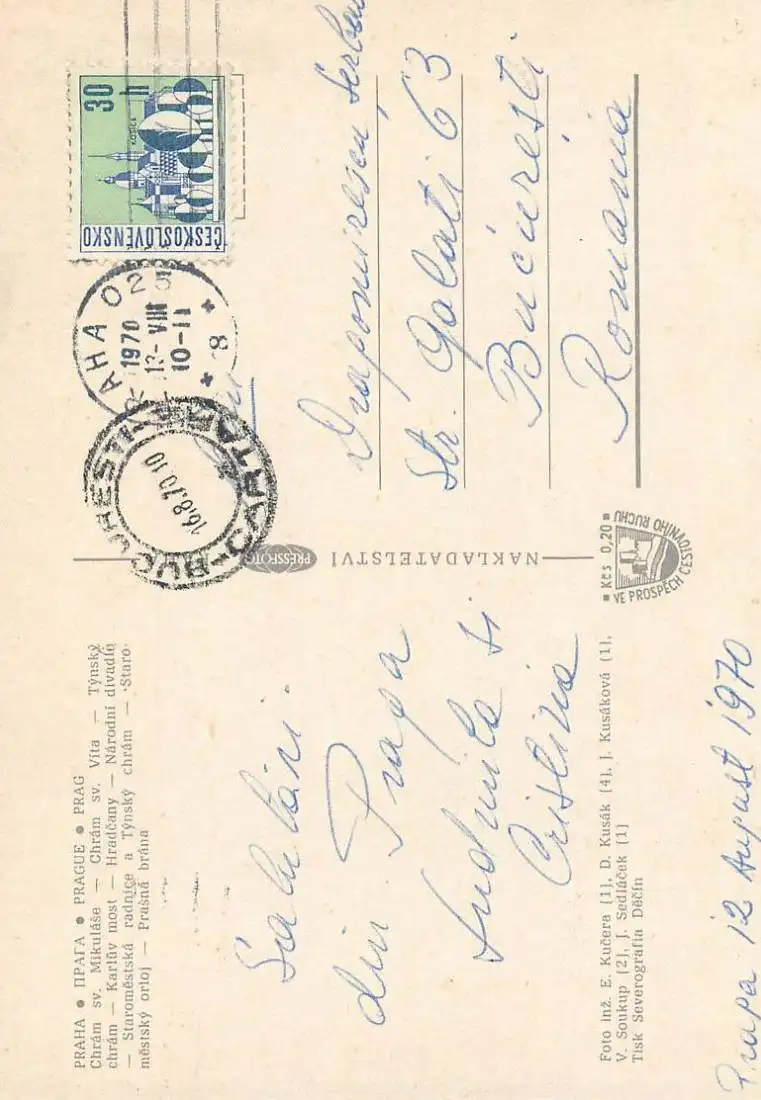 PRAHA ● ПРАГА ● PRAGUE ● PRAG
Chrám sv. Mikuláše — Chrám sv. Víta — Týnský
chrám — Karlův most — Hradčany — Národní divadlo
— Staroměstská radnice a Týnský chrám — Staro-
městský orloj — Prašná brána
Salutări
din Praga
Ludmila si
Cristina
Foto inž. E. Kučera [1], D. Kusák [4], J. Kusáková [1],
V. Soukup [2], J. Sedláček [1]
Tisk Severografia Děčín
Praga 12 August 1970
NAKLADATELSTVÍ PRESSFOTO
Kčs 0,20
VE PROSPĚCH CESTOVNÍHO RUCHU
30 h
KOŠICE
ČESKOSLOVENSKO
PRAHA 025
1970
13-VIII
10-11
* 8 *
BUCUREȘTI
16.8.70.10
Dragomirescu Șerban
Str. Galati 63
București
Romania